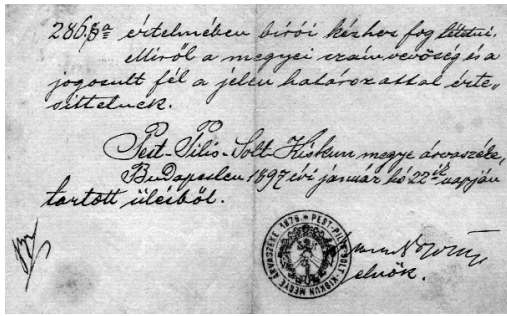 286 §a értelmében birói kézhez fog tétetni.
Miről a megyei számvevőség és a
jogosult fél a jelen határozattal érte-
sittetnek.
Pest-Pilis-Solt-Kiskun megye árvaszéke,
Budapesten 1897 évi január hó 22ik napján
tartott üléséből.
PEST-PILIS-SOLT-KISKUN MEGYE ÁRVASZÉKE 1876.
elnök.